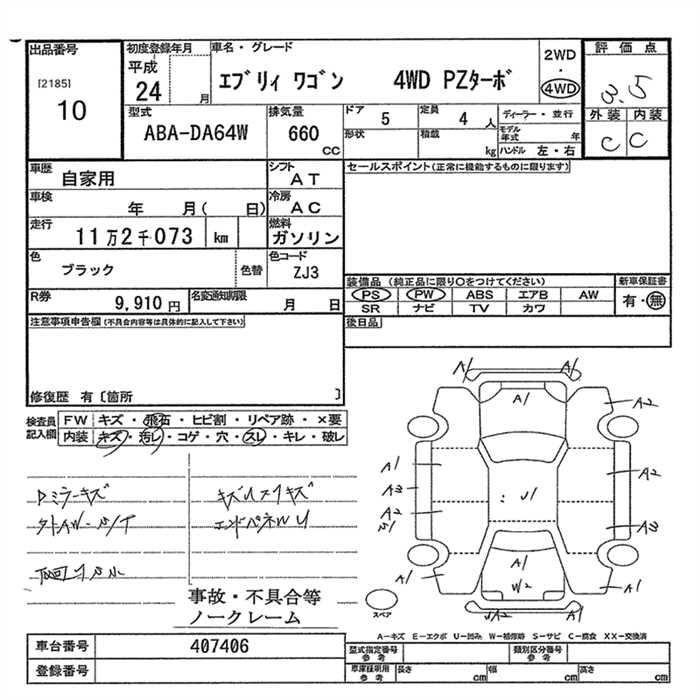 出品番号
[2185]
10
初度登録年月
平成
24 月
車名・グレード
エブリィ ワゴン 4WD PZターボ
2WD
・
4WD
評価点
3.5
外装 内装
C C
型式
ABA-DA64W
排気量
660
CC
ドア 5
定員 4 人
形状
積載 kg
ディーラー・並行
モデル年式 年
ハンドル 左・右
車歴
自家用
シフト
AT
車検
年 月( 日)
冷房
AC
走行
11万2千073 km
燃料
ガソリン
色
ブラック
色替
色コード
ZJ3
R券
9,910 円
名変通知期限
月 日
セールスポイント(正常に機能するものに限ります)
装備品 (純正品に限り○をつけてください)
PS PW ABS エアB AW
SR ナビ TV カワ
新車保証書
有・無
後日品
注意事項申告欄(不具合内容等は具体的に記入して下さい)
修復歴 有〔箇所 〕
検査員記入欄
FW キズ・飛石・ヒビ割・リペア跡・×要
内装 キズ・汚レ・コゲ・穴・スレ・キレ・破レ
ミラーキズ
キズ
エンドパネルU
事故・不具合等
ノークレーム
A1 A1
A1
A2
A1
A3
A2
U1
A2
A3
A1
A1
A1
U2
UA2
スペア
A-キズ E-エクボ U-凹み W-補修跡 S-サビ C-腐食 XX-交換済
車台番号 407406
登録番号
型式指定番号
参考
類別区分番号
参考
車庫証明用
参考
長さ cm 幅 cm 高さ cm